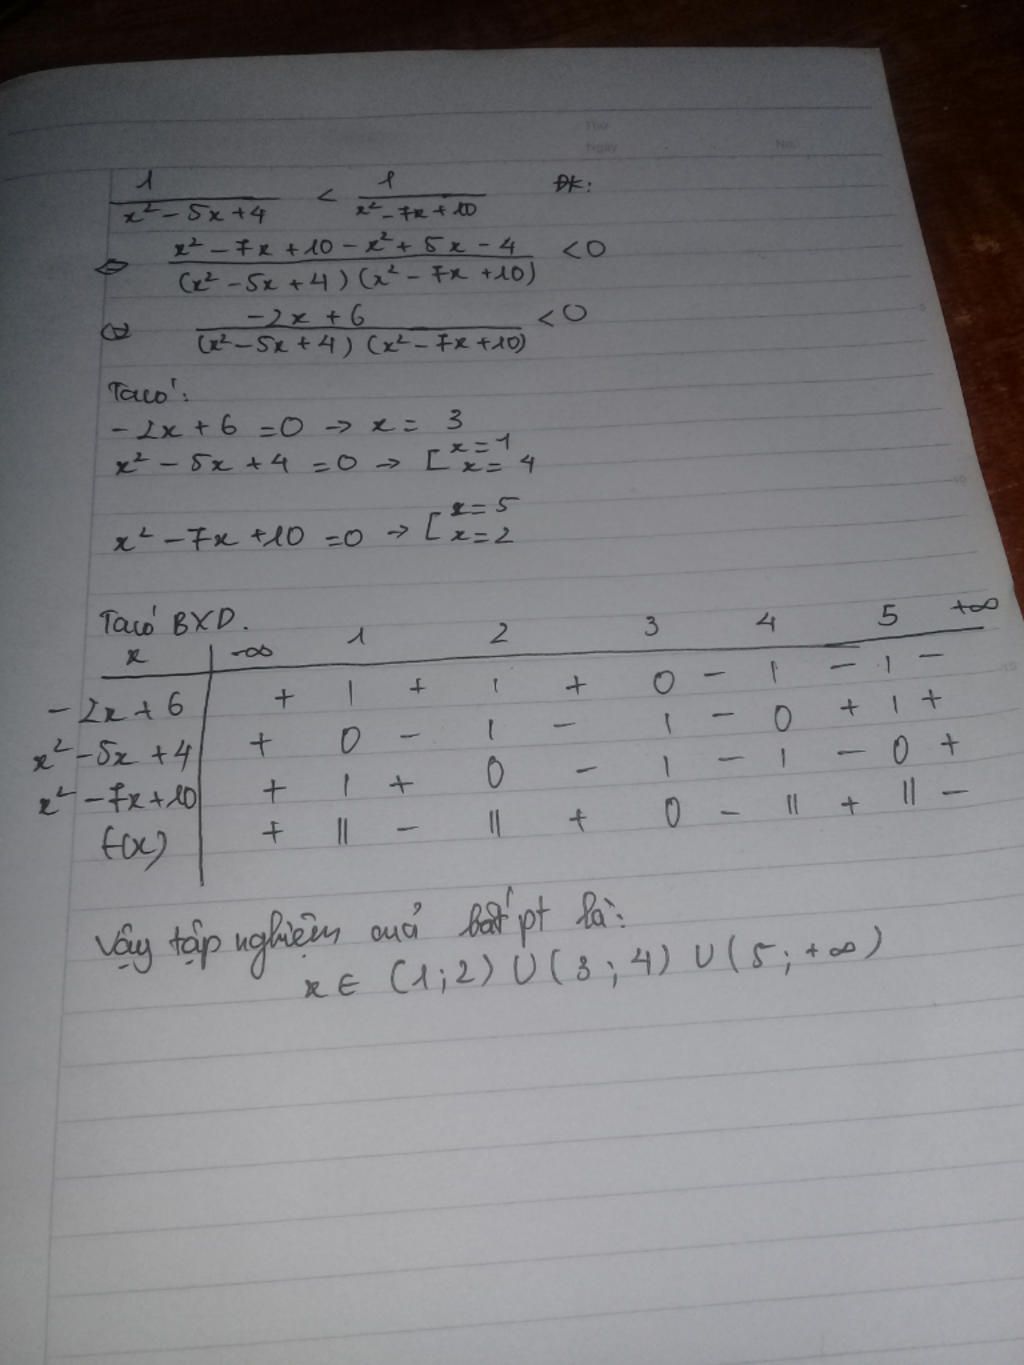 Thứ
Ngày No.
1/(x² - 5x + 4) < 1/(x² - 7x + 10) ĐK:
⇔ (x² - 7x + 10 - x² + 5x - 4)/((x² - 5x + 4)(x² - 7x + 10)) < 0
⇔ (-2x + 6)/((x² - 5x + 4)(x² - 7x + 10)) < 0
Ta có:
-2x + 6 = 0 → x = 3
x² - 5x + 4 = 0 → [ x = 1
x = 4
x² - 7x + 10 = 0 → [ x = 5
x = 2
Ta có BXD.
x | -∞ 1 2 3 4 5 +∞
-2x + 6 | + | + | + 0 - | - | -
x² - 5x + 4 | + 0 - | - | - 0 + | +
x² - 7x + 10 | + | + 0 - | - | - 0 +
f(x) | + || - || + 0 - || + || -
Vậy tập nghiệm của bất pt là:
x ∈ (1;2) ∪ (3;4) ∪ (5;+∞)